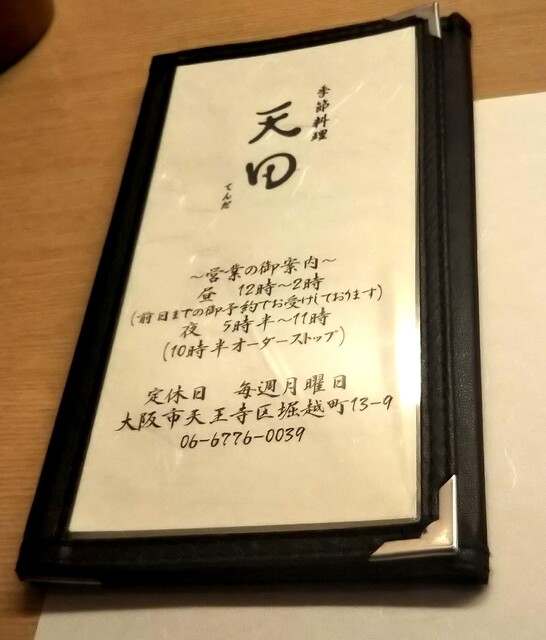 季節料理
天田
てんだ
～営業の御案内～
昼　12時～2時
(前日までの御予約でお受けしております)
夜　5時半～11時
(10時半オーダーストップ)
定休日　毎週月曜日
大阪市天王寺区堀越町13-9
06-6776-0039